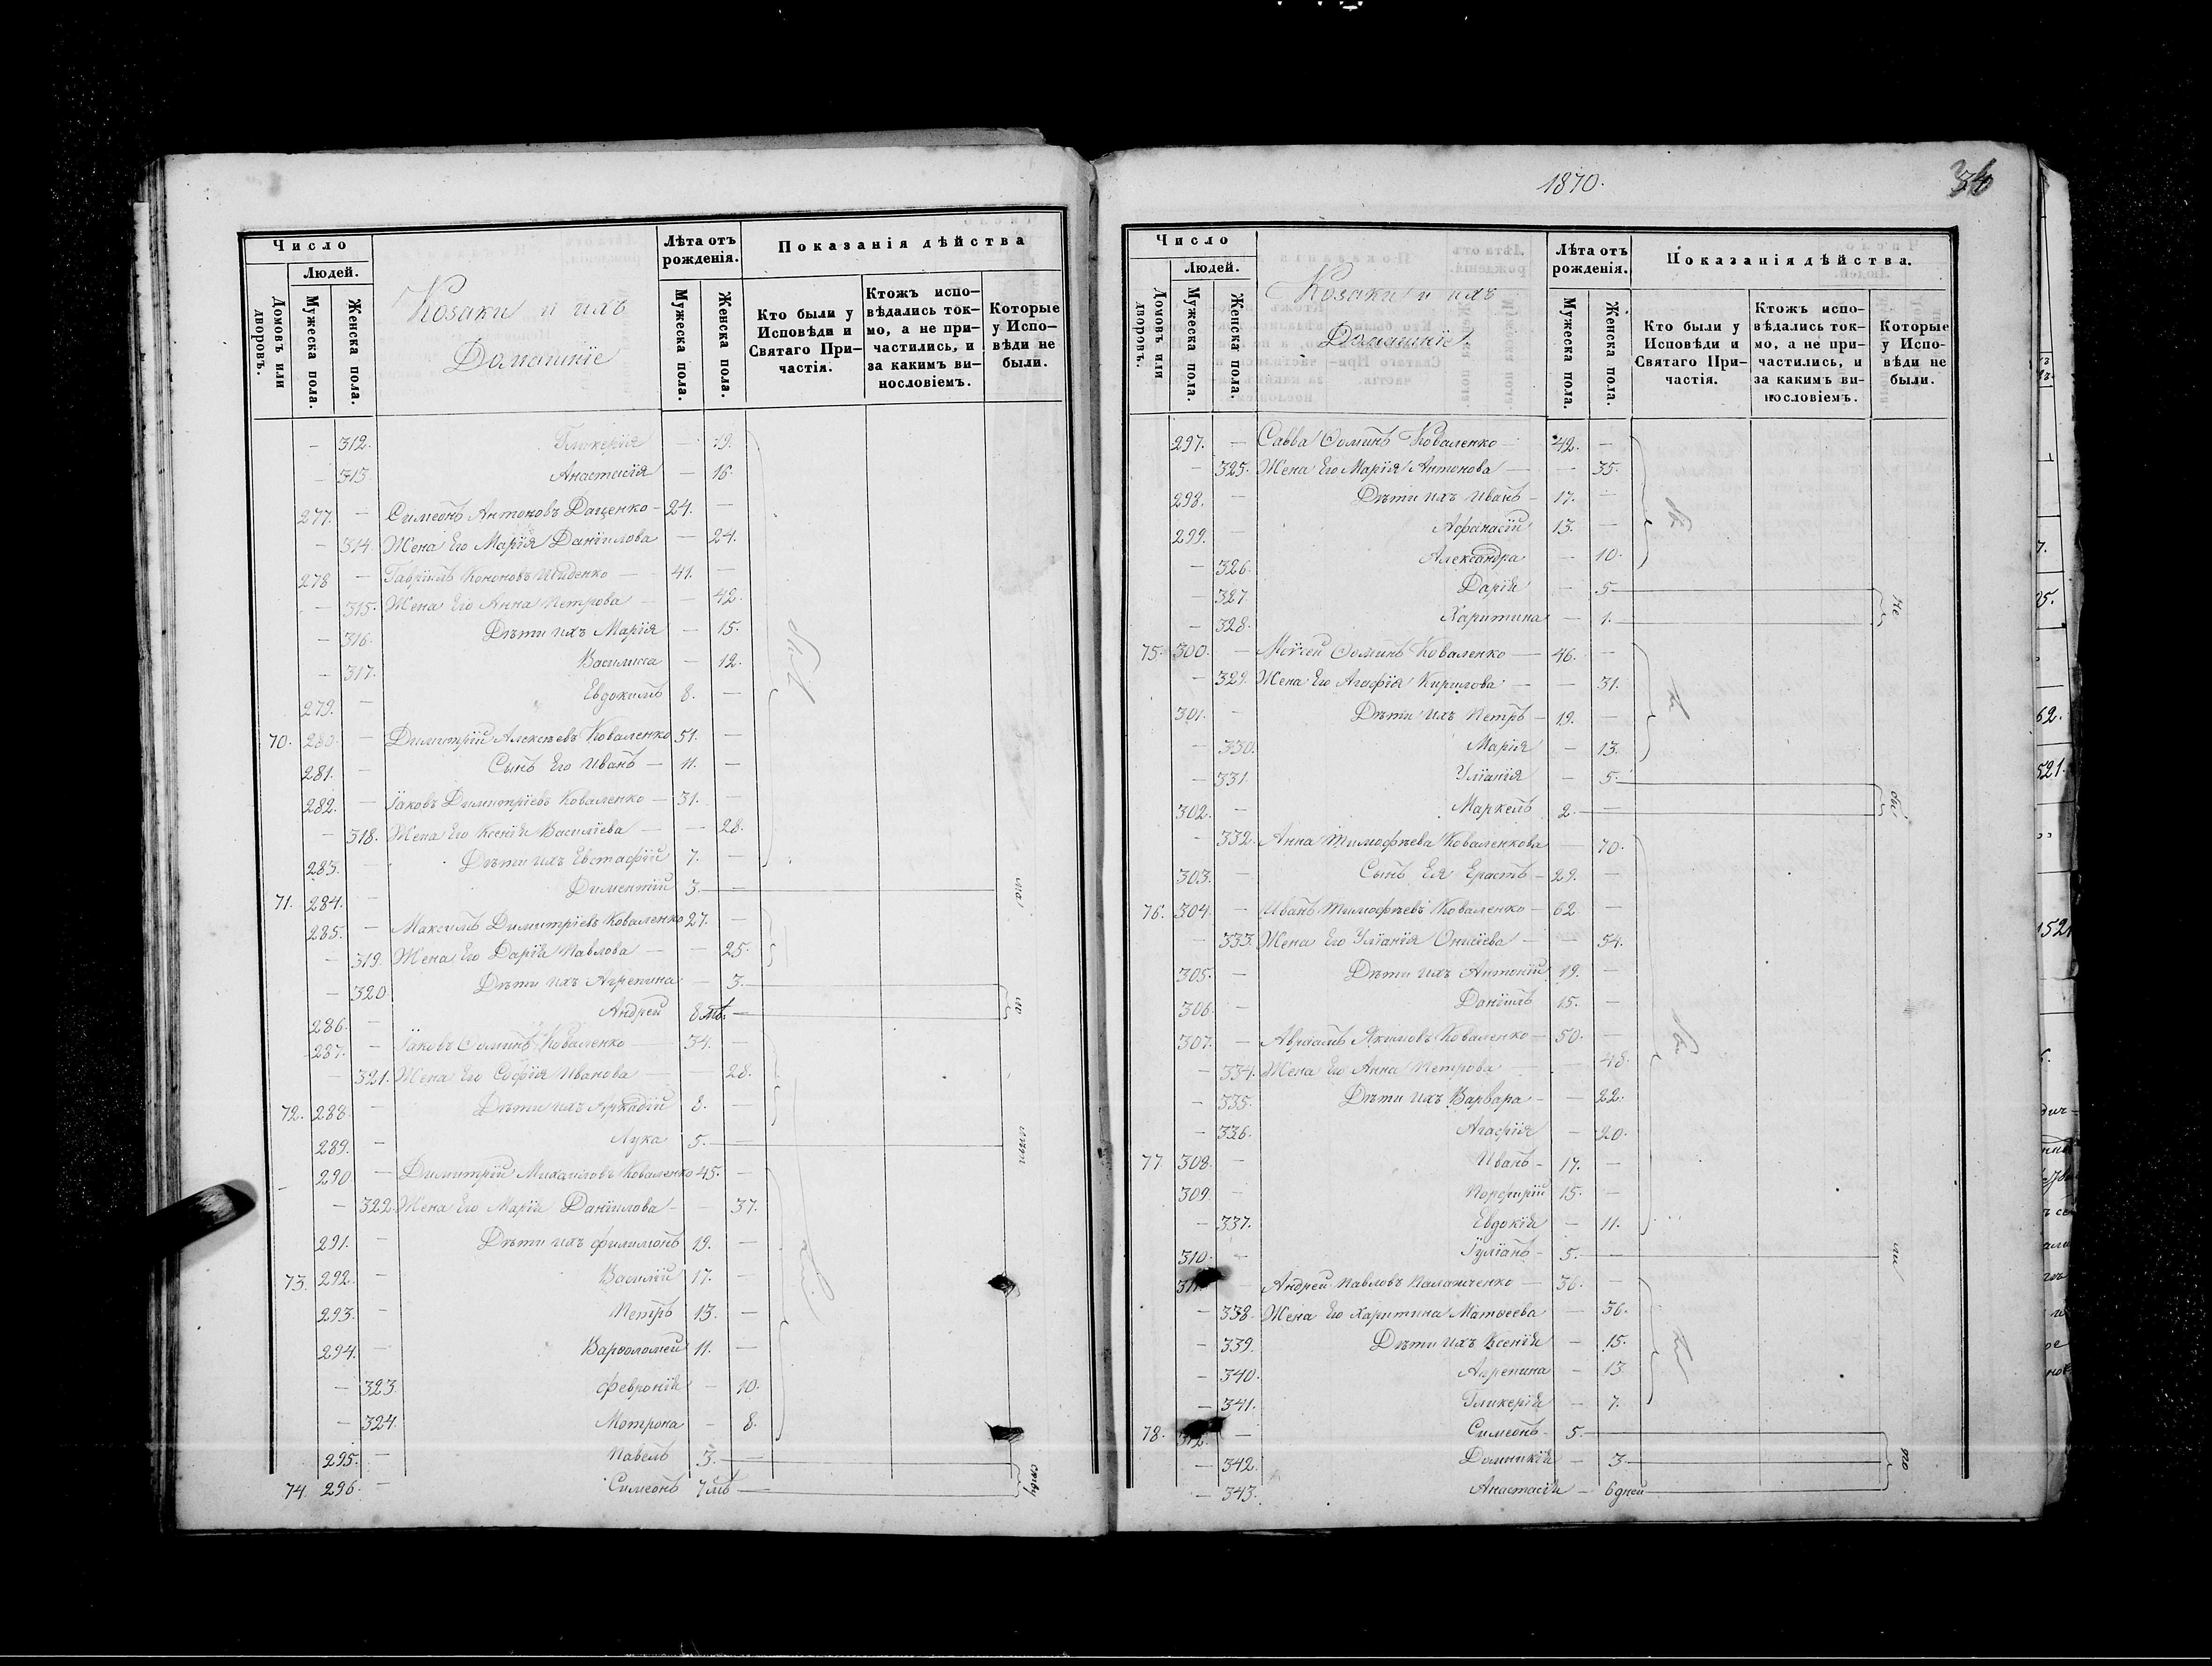 Число
Людей.
Домовъ или дворовъ.
Мужеска пола.
Женска пола.
Козаки и ихъ
Домашніе
Лѣта отъ рожденія.
Мужеска пола.
Женска пола.
Показанія дѣйства
Кто были у Исповѣди и Святаго Причастія.
Ктожъ исповѣдались токмо, а не причастились, и за какимъ винословіемъ.
Которые у Исповѣди не были.
— 312. Гликерія — 19.
— 313. Анастасія — 16.
277. — Симеонъ Антоновъ Даценко — 24. —
— 314. Жена Его Марія Даніилова — 24.
278 — Гавріилъ Кононовъ — 41. —
— 315. Жена Его Анна Петрова — 42.
— 316. Дѣти ихъ Марія — 15.
— 317. Василисса — 12.
279. — Евдокимъ 8. —
70. 280. — Димитрій Алексѣевъ Коваленко 51. —
281. — Сынъ Его Иванъ — 11. —
282. — Іаковъ Димитріевъ Коваленко — 31. —
— 318. Жена Его Ксенія Василіева — 28.
283. — Дѣти ихъ Евстафій 7. —
71. 284. — Диментій 3. —
285. — Максимъ Димитріевъ Коваленко 27. —
— 319. Жена Его Дарія Павлова — 25.
— 320. Дѣти ихъ Агрепина — 3.
286. — Андрей 8 мѣ. —
287. — Іаковъ Ѳоминъ Коваленко — 34. —
— 321. Жена Его Софія Иванова — 28.
72. 288 — Дѣти ихъ Аркадій 8. —
289. — Лука 5. —
290 — Димитрій Михаиловъ Коваленко 45. —
— 322. Жена Его Марія Даніилова — 37.
291. — Дѣти ихъ Филимонъ 19. —
73. 292. — Василій 17. —
293. — Петръ 13. —
294. — Варѳоломей 11. —
— 323. Февронія — 10.
— 324. Мотрона — 8.
295. — Павелъ 3. —
74. 296. — Симеонъ 7 мѣ —
1870.
34
Число
Людей.
Домовъ или дворовъ.
Мужеска пола.
Женска пола.
Козаки и ихъ
Домашніе
Лѣта отъ рожденія.
Мужеска пола.
Женска пола.
Показанія дѣйства.
Кто были у Исповѣди и Святаго Причастія.
Ктожъ исповѣдались токмо, а не причастились, и за какимъ винословіемъ.
Которые у Исповѣди не были.
297. — Савва Ѳоминъ Коваленко — 42. —
— 325. Жена Его Марія Антонова — 35.
298. — Дѣти ихъ Иванъ — 17. —
299. — Афанасій 13. —
— 326. Александра — 10.
— 327 Дарія — 5.
— 328. Харитина — 1.
75. 300. — Моѵсей Ѳоминъ Коваленко — 46. —
— 329. Жена Его Агафія Кирилова — 31.
301. — Дѣти ихъ Петръ — 19. —
— 330. Марія — 13.
— 331. Уліанія — 5.
302. — Маркелъ 2. —
— 332. Анна Тимофѣева Коваленкова — 70.
303. — Сынъ Ея Ерастъ — 29. —
76. 304. — Иванъ Тимофѣевъ Коваленко — 62. —
— 333. Жена Его Уліанія Онисіева — 54.
305. — Дѣти ихъ Антоній 19. —
306. — Даніилъ 15. —
307. — Авраамъ Якимовъ Коваленко — 50. —
— 334. Жена Его Анна Петрова — 48.
— 335. Дѣти ихъ Варвара — 22.
— 336. Агафія — 20.
77. 308. — Иванъ — 17. —
309. — Порфирій 15. —
— 337. Евдокія — 11.
310. — Іуліанъ — 5. —
311. — Андрей Павловъ — 36. —
— 338. Жена Его Харитина Матвеева — 36.
— 339. Дѣти ихъ Ксенія — 15.
— 340. Агрепина — 13
— 341. Гликерія — 7.
78. 312. — Симеонъ — 5. —
— 342. Домникія — 3.
— 343. Анастасія — 6 дней